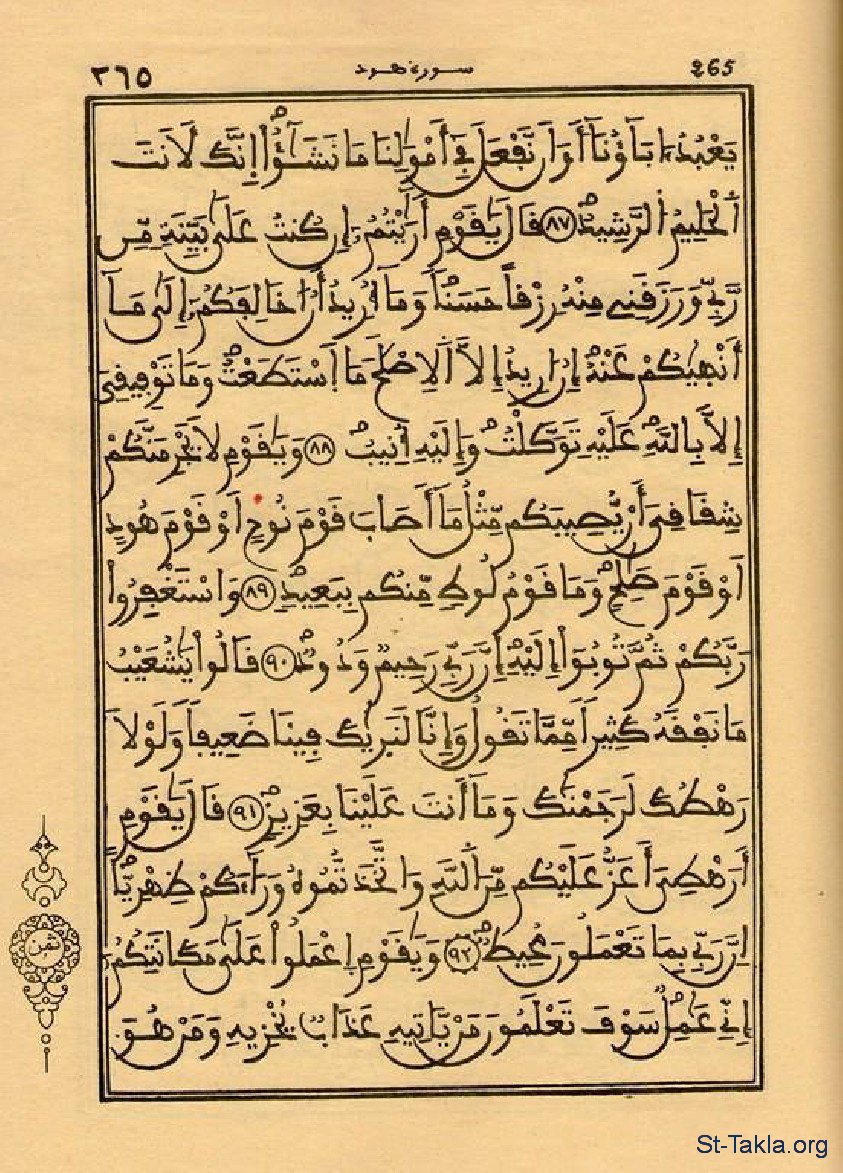 ٢٦٥ سورة هود 265
يَعْبُدُ ءَابَآؤُنَآ أَوَ اَن نَّفْعَلَ فِےٓ أَمْوَٰلِنَا مَا نَشَٰٓؤُاْ إِنَّكَ لَأَنتَ
اَلْحَلِيمُ الرَّشِيدُ ٨٧ قَالَ يَٰقَوْمِ أَرَٰيْتُمُۥٓ إِن كُنتُ عَلَىٰ بَيِّنَةٍ مِّن
رَّبِّے وَرَزَقَنِے مِنْهُ رِزْقاً حَسَناً وَمَآ أُرِيدُ أَنُ اخَالِفَكُمُۥٓ إِلَىٰ مَآ
أَنْهَىٰكُمْ عَنْهُ إِنُ ارِيدُ إِلَّا اَلِاصْلَٰحَ مَا اَسْتَطَعْتُ وَمَا تَوْفِيقِيَ
إِلَّا بِاللَّهِ عَلَيْهِ تَوَكَّلْتُ وَإِلَيْهِ أُنِيبُ ٨٨ وَيَٰقَوْمِ لَا يَجْرِمَنَّكُمْ
شِقَاقِيَ أَنْ يُّصِيبَكُم مِّثْلُ مَآ أَصَابَ قَوْمَ نُوحٍ اَوْ قَوْمَ هُودٍ
اَوْ قَوْمَ صَٰلِحٍ وَمَا قَوْمُ لُوطٍ مِّنكُم بِبَعِيدٍ ٨٩ وَاسْتَغْفِرُواْ
رَبَّكُمْ ثُمَّ تُوبُوٓاْ إِلَيْهِ إِنَّ رَبِّے رَحِيمٌ وَدُودٌ ٩٠ قَالُواْ يَٰشُعَيْبُ
مَا نَفْقَهُ كَثِيراً مِّمَّا تَقُولُ وَإِنَّا لَنَرَىٰكَ فِينَا ضَعِيفاً وَلَوْلَا
رَهْطُكَ لَرَجَمْنَٰكَ وَمَآ أَنتَ عَلَيْنَا بِعَزِيزٍ ٩١ قَالَ يَٰقَوْمِ
أَرَهْطِيَ أَعَزُّ عَلَيْكُم مِّنَ اَللَّهِ وَاتَّخَذتُّمُوهُ وَرَآءَكُمْ ظِهْرِيّاً
اِنَّ رَبِّے بِمَا تَعْمَلُونَ مُحِيطٌ ٩٢ وَيَٰقَوْمِ اِعْمَلُواْ عَلَىٰ مَكَانَتِكُمُۥٓ
إِنِّے عَٰمِلٌ سَوْفَ تَعْلَمُونَ مَنْ يَّاتِيهِ عَذَابٌ يُخْزِيهِ وَمَنْ هُوَ
ثمن
St-Takla.org